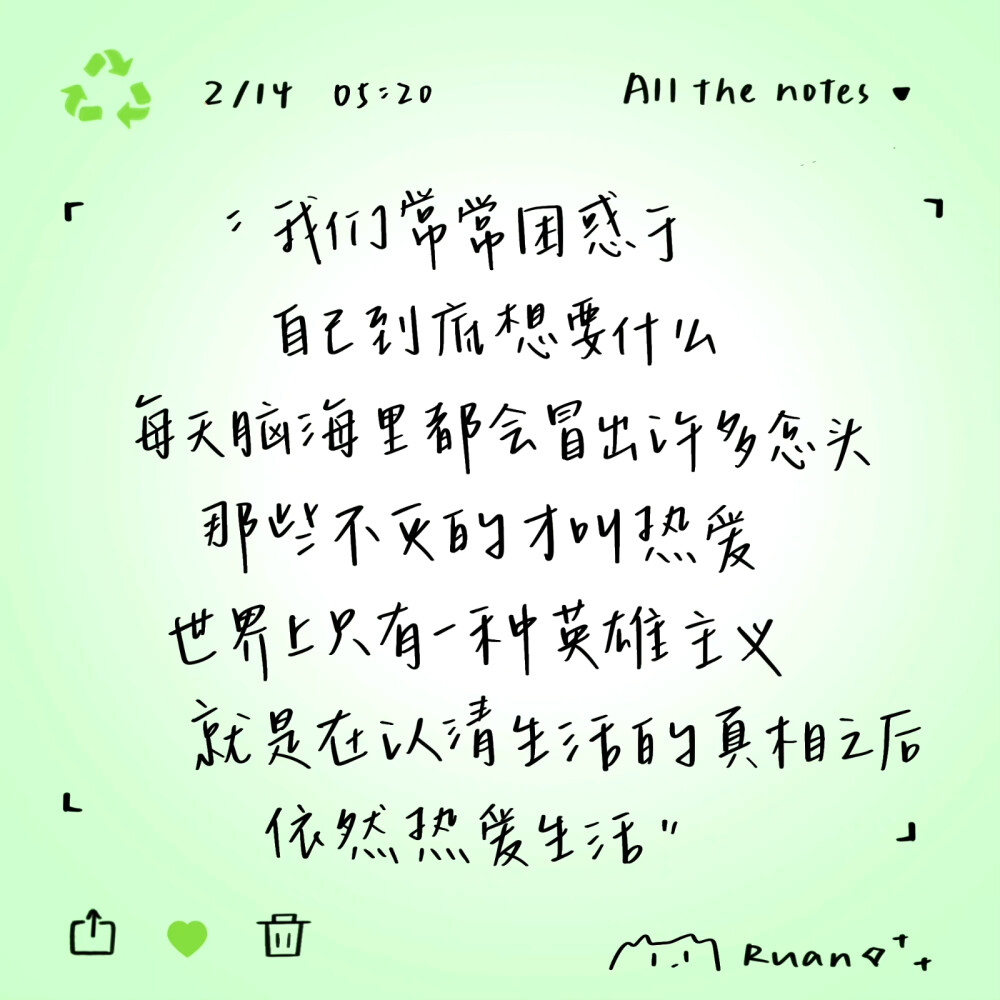 2/14 05:20 All the notes
"我们常常困惑于
自己到底想要什么
每天脑海里都会冒出许多念头
那些不灭的才叫热爱
世界上只有一种英雄主义
就是在认清生活的真相之后
依然热爱生活"
Ruan